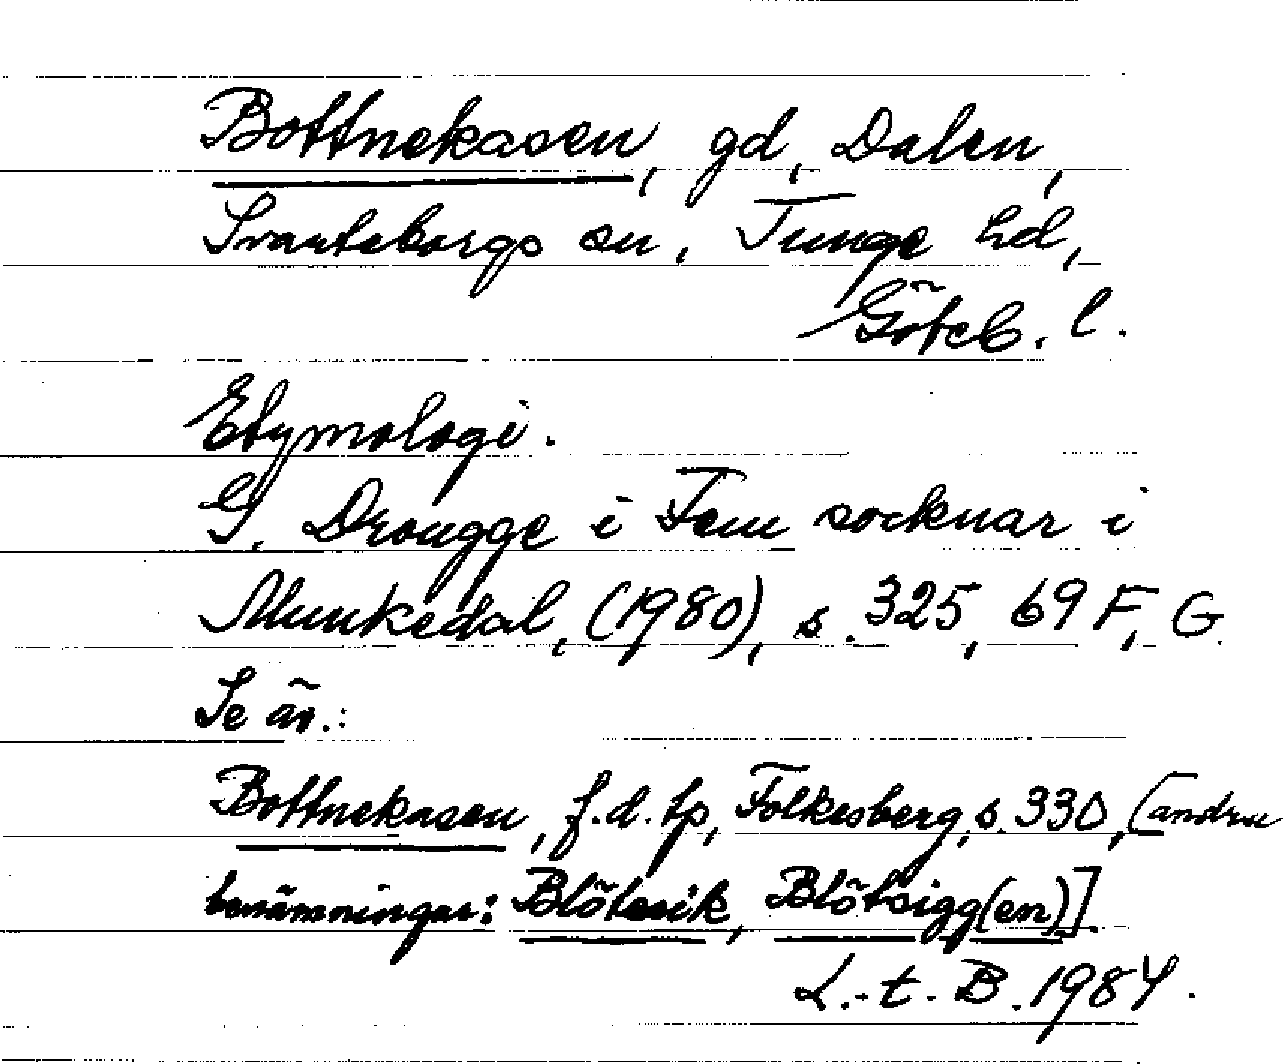 Bottnekasen, gd, Dalen,
Svarteborgs sn, Tunge hd,
Göteb. l.
Etymologi.
G. Drougge i Fem socknar i
Munkedal, (1980), s. 325, 69 F, G.
Se äv.:
Bottnekasen, f.d. tp, Folkesberg, s. 330, [andra
benämningar: Blötevik, Blötsigg(en)].
L.-t. B. 1984.